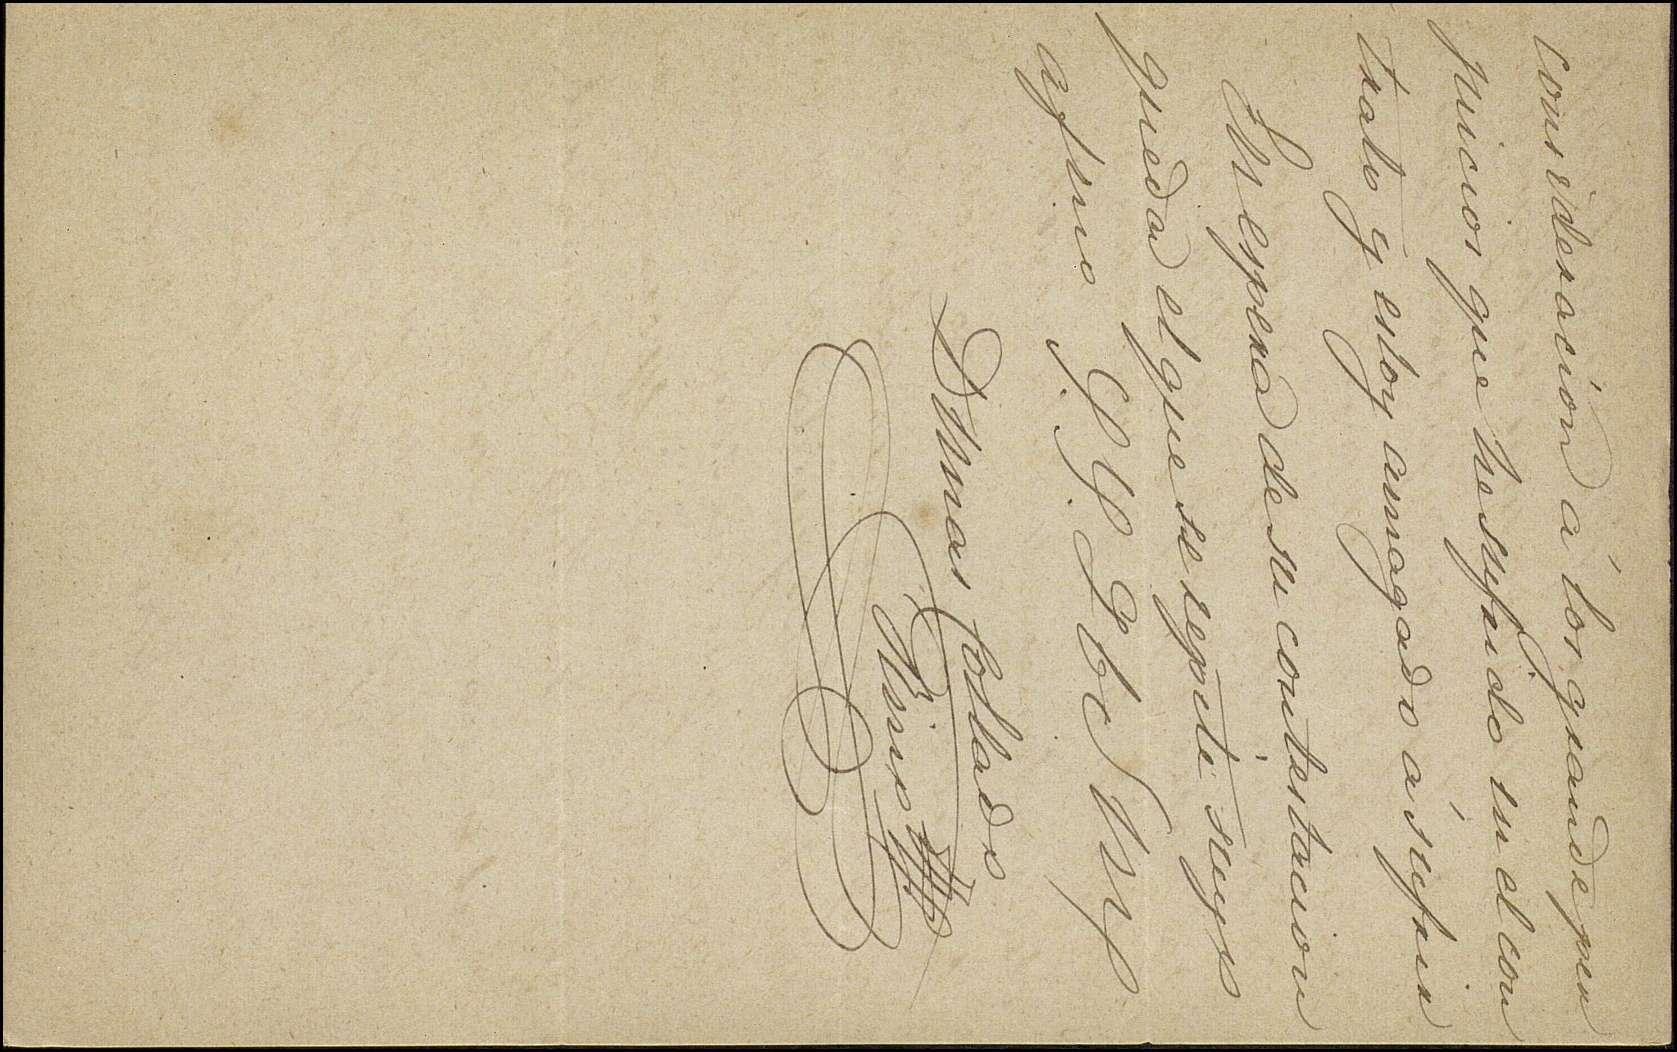 consideración á los grandes per
juicios que he sufrido en el con
trato q estoy amagado á sufrir
En espera de su contestacion
queda el que se repite suyo
afmo S S Q b s M
Dimas Collado